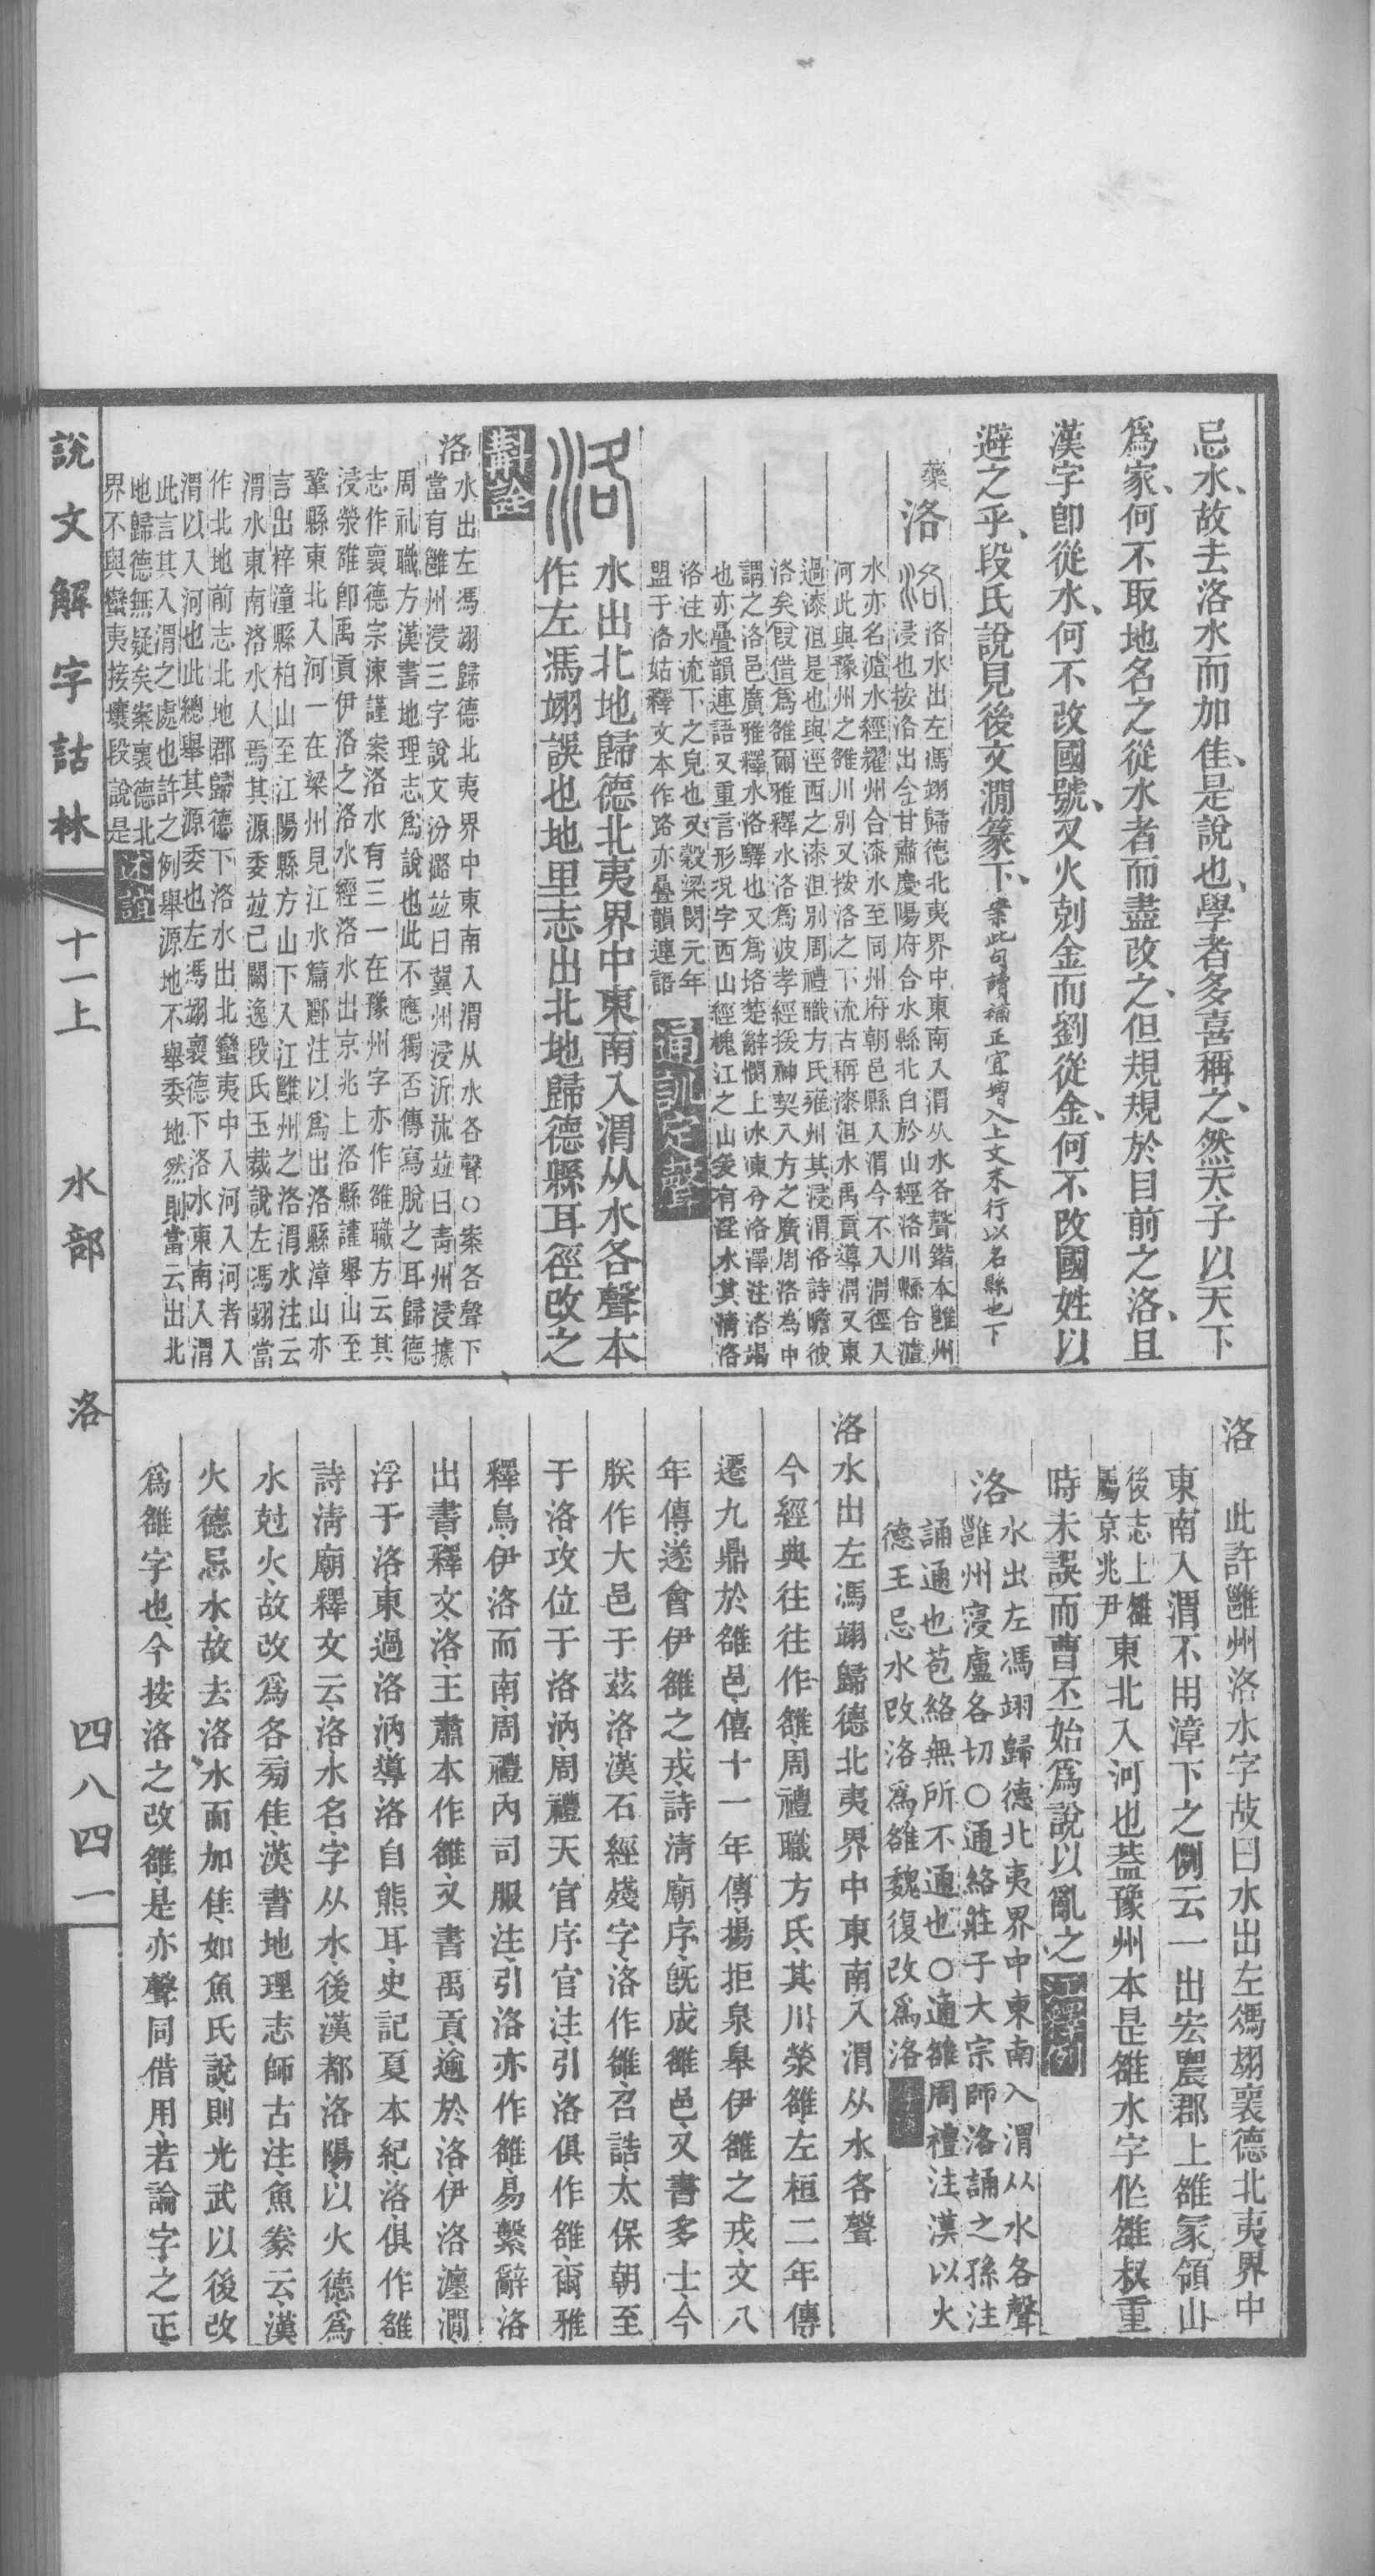 忌水、故去洛水而加隹、是說也、學者多喜稱之、然天子以天下
爲家、何不取地名之從水者而盡改之、但規規於目前之洛、且
漢字卽從水、何不改國號、又火剋金而劉從金、何不改國姓以
避之乎、段氏說見後文澗篆下、案此句讀補正宜增入上文末行以名縣也下
藥
洛
洛水出左馮翊歸德北夷界中東南入渭从水各聲鍇本雝州
浸也按洛出今甘肅慶陽府合水縣北白於山經洛川縣合瀘
水亦名瀘水經耀州合漆水至同州府朝邑縣入渭今不入渭徑入
河此與豫州之雒川別又按洛之下流古稱漆沮水禹貢導渭又東
過漆沮是也與涇西之漆沮別周禮職方氏雍州其浸渭洛詩瞻彼
洛矣叚借爲雒爾雅釋水洛爲波孝經援神契八方之廣周洛為中
謂之洛邑廣雅釋水洛驛也又爲垎楚辭憫上冰凍兮洛澤注洛竭
也亦疊韻連語又重言形況字西山經槐江之山爰有淫水其淸洛
洛注水流下之皃也又穀梁閔元年
盟于洛姑釋文本作路亦疊韻連語
通訓定聲
水出北地歸德北夷界中東南入渭从水各聲本
作左馮翊誤也地里志出北地歸德縣耳徑改之
斠詮
洛水出左馮翊歸德北夷界中東南入渭从水各聲〇案各聲下
當有雝州浸三字說文汾潞竝曰冀州浸沂沭竝曰靑州浸據
周礼職方漢書地理志爲說也此不應獨否傳寫脫之耳歸德
志作襄德宗涑謹案洛水有三一在豫州字亦作雒職方云其
浸滎雒卽禹貢伊洛之洛水經洛水出京兆上洛縣讙舉山至
鞏縣東北入河一在梁州見江水篇酈注以爲出洛縣漳山亦
言出梓潼縣柏山至江陽縣方山下入江雝州之洛渭水注云
渭水東南洛水人焉其源委竝已闕逸段氏玉裁說左馮翊當
作北地前志北地郡歸德下洛水出北蠻夷中入河入河者入
渭以入河也此總舉其源委也左馮翊襄德下洛水東南入渭
此言其入渭之處也許之例舉源地不舉委地然則當云出北
地歸德無疑矣案襄德北
界不與蠻夷接壤段說是
洛　此許雝州洛水字故曰水出左馮翊襄德北夷界中
東南入渭不用漳下之例云一出宏農郡上雒冢領山
後志上雒
屬京兆尹
東北入河也葢豫州本是雒水字伀雒叔重
時未誤而曹丕始爲說以亂之
洛水出左馮翊歸德北夷界中東南入渭从水各聲
雝州寖盧各切〇通絡莊子大宗師洛誦之孫注
誦通也苞絡無所不通也〇通雒周禮注漢以火
德王忌水改洛爲雒魏復改爲洛
洛水出左馮翊歸德北夷界中東南入渭从水各聲
今經典往往作雒、周禮職方氏、其川滎雒、左桓二年傳、
遷九鼎於雒邑、僖十一年傳、揚拒泉皋伊雒之戎、文八
年傳、遂會伊雒之戎、詩清廟序、旣成雒邑、又書多士、今
朕作大邑于茲洛、漢石經殘字、洛作雒、召誥、太保朝至
于洛、攻位于洛汭、周禮天官序官注、引洛俱作雒、爾雅
釋鳥、伊洛而南、周禮內司服注、引洛亦作雒、易繫辭洛
出書、釋文、洛、王肅本作雒、又書禹貢、逾於洛、伊洛瀍澗、
浮于洛、東過洛汭、導洛自熊耳、史記夏本紀、洛、俱作雒
詩淸廟釋文云、洛水名、字从水、後漢都洛陽、以火德、爲
水尅火、故改爲各旁隹、漢書地理志師古注、魚豢云、漢
火德忌水、故去洛水而加隹、如魚氏說、則光武以後改
爲雒字也、今按洛之改雒、是亦聲同借用、若論字之正、
說文解字詁林
十一上　水部　洛
四八四一